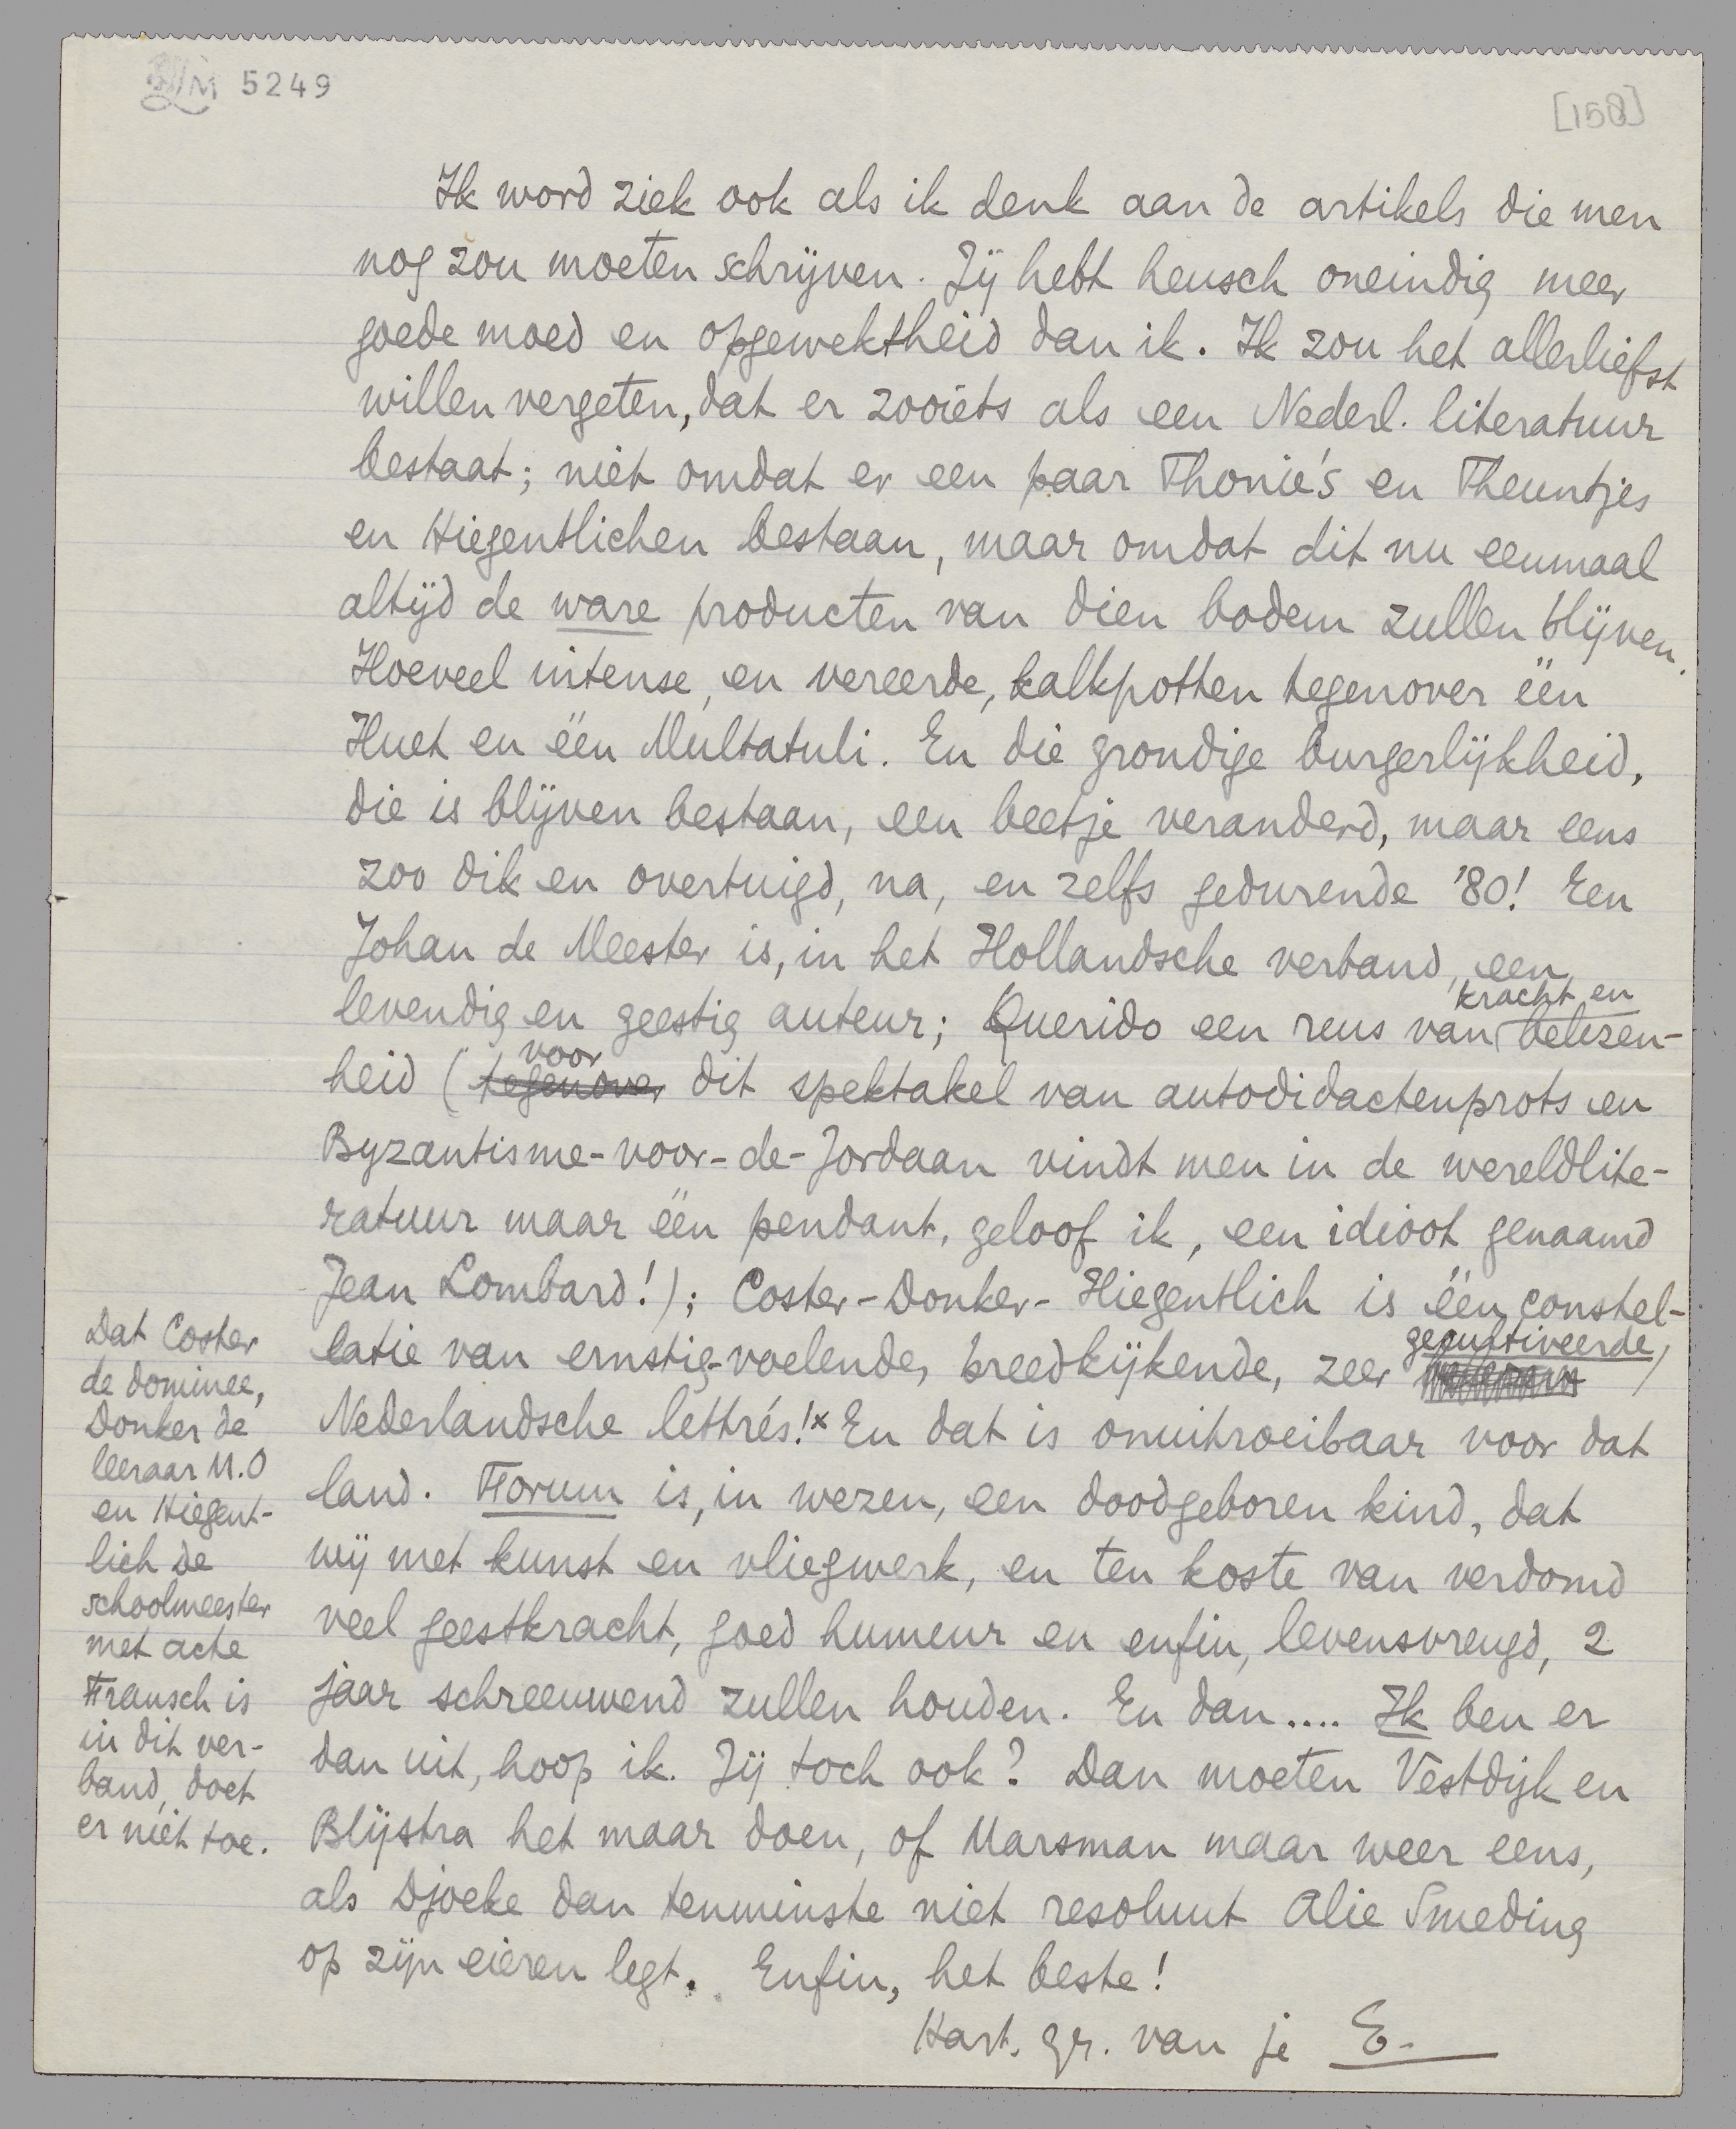 LM 5249
[158]
Ik word ziek ook als ik denk aan de artikels die men
nog zou moeten schrijven. Jij hebt heusch oneindig meer
goede moed en opgewektheid dan ik. Ik zou het allerliefst
willen vergeten, dat er zooiets als een Nederl. literatuur
bestaat; niet omdat er een paar Thonie's en Theuntjes
en Hiegentlichen bestaan, maar omdat dit nu eenmaal
altijd de ware producten van dien bodem zullen blijven.
Hoeveel intense, en vereerde, kalkpotten tegenover één
Huet en één Multatuli. En die grondige burgerlijkheid,
die is blijven bestaan, een beetje veranderd, maar eens
zoo dik en overtuigd, na, en zelfs gedurende '80! Een
Johan de Meester is, in het Hollandsche verband, een
levendig en geestig auteur; Querido een reus van kracht en belezen-
heid (tegenover voor dit spektakel van autodidactenprots en
Byzantisme-voor-de-Jordaan vindt men in de wereldlite-
ratuur maar één pendant, geloof ik, een idioot genaamd
Jean Lombard!); Coster-Donker-Hiegentlich is één constel-
latie van ernstig-voelende, breedkijkende, zeer gecultiveerde,
Nederlandsche lettrés!x En dat is onuitroeibaar voor dat
land. Forum is, in wezen, een doodgeboren kind, dat
wij met kunst en vliegwerk, en ten koste van verdomd
veel geestkracht, goed humeur en enfin, levensvreugd, 2
jaar schreeuwend zullen houden. En dan.... Ik ben er
dan uit, hoop ik. Jij toch ook? Dan moeten Vestdijk en
Blijstra het maar doen, of Marsman maar weer eens,
als Djoeke dan tenminste niet resoluut Alie Smeding
op zijn eieren legt. Enfin, het beste!
Hart. gr. van je E.
Dat Coster
de dominee,
Donker de
leeraar M.O
en Hiegent-
lich de
schoolmeester
met acte
Fransch is
in dit ver-
band, doet
er niet toe.